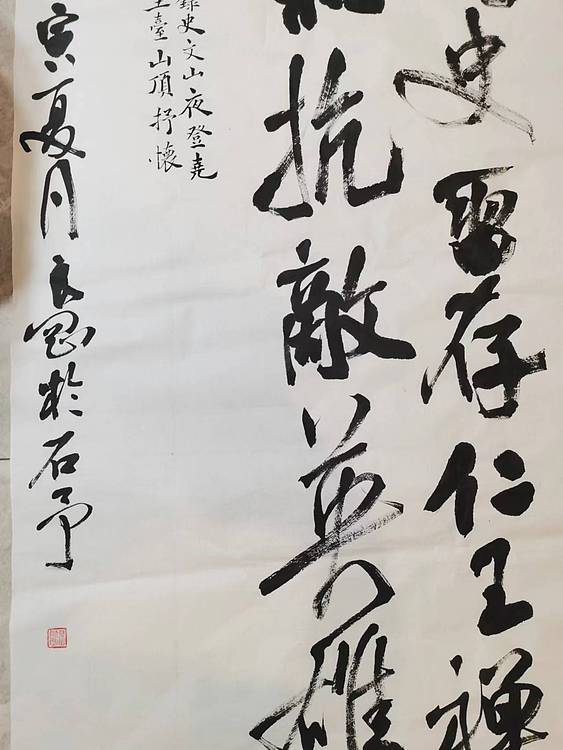 史留存仁王禪
抗敵英雄
錄史文山夜登堯
王臺山頂抒懷
寅夏月於石